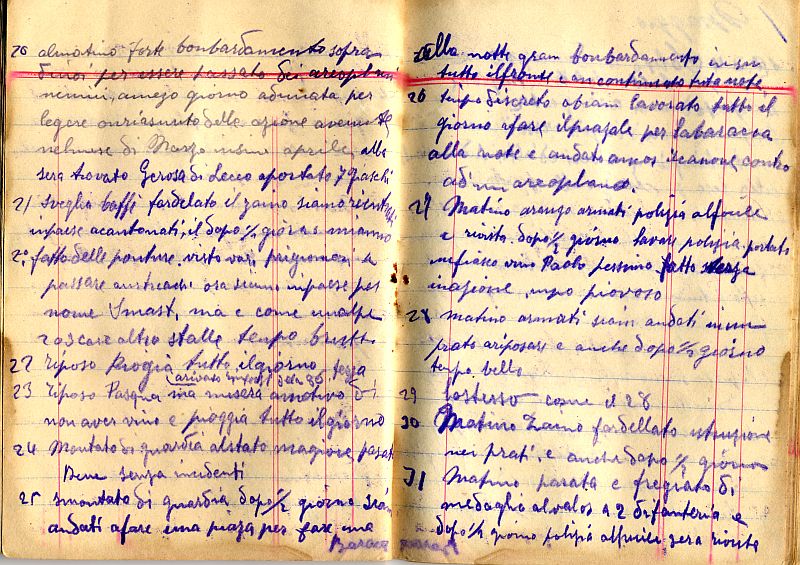 20 almatino forte bonbardamento sopra
di noi per essere passato dei areoplani
nemini, amezo giorno adunata per
legere un riasunto delle azione avenute
nelmese di Marzo insino aprile, alla
sera trovato Gerosa di Lecco aportato 7 fiaschi
21 sveglia baffi fardelato il zaino siamo
inpaese acantonati, il dopo ½ giorno
fatto delle ponture. visto vari prigionieri a
passare austriachi ora siamo inpaese per
nome Smast, ma e come unalpe
altro stalle tempo brutto
22 riposo Piogia tutto ilgiorno
23 riposo Pasqua ma misera amotivo di
non aver vino e pioggia tutto ilgiorno
24 Montato di guardia alstato magiore pasat
Bene senza incidenti
25 smontato di guardia dopo ½ giorno siam
andati afare una piaza per fare una
Baraca
alla notte gran bonbardamento in su
tutto ilfronte, an continuato tuta note
26 tenpo discreto abiam lavorato tutto il
giorno afare ilpiazale per labaracca
alla note e andato il canone contro
ad un areoplano.
27 Matino armati polizia alfucile
e rivista. dopo ½ giorno lavare polizia, portato
infiasco vino Paolo pessimo fatto
piovoso
28 matino armati siam andati in un
prato ariposare e anche dopo ½ giorno
tenpo bello
29 lostesso come il 28
30 Matino Zaino fardellato istruzione
nei prati, e anche dopo ½ giorno
31 Matino parata e fregiato di
medaglia alvalor a 2 difanteria e
dopo ½ giorno polizia alfucile sera riviste